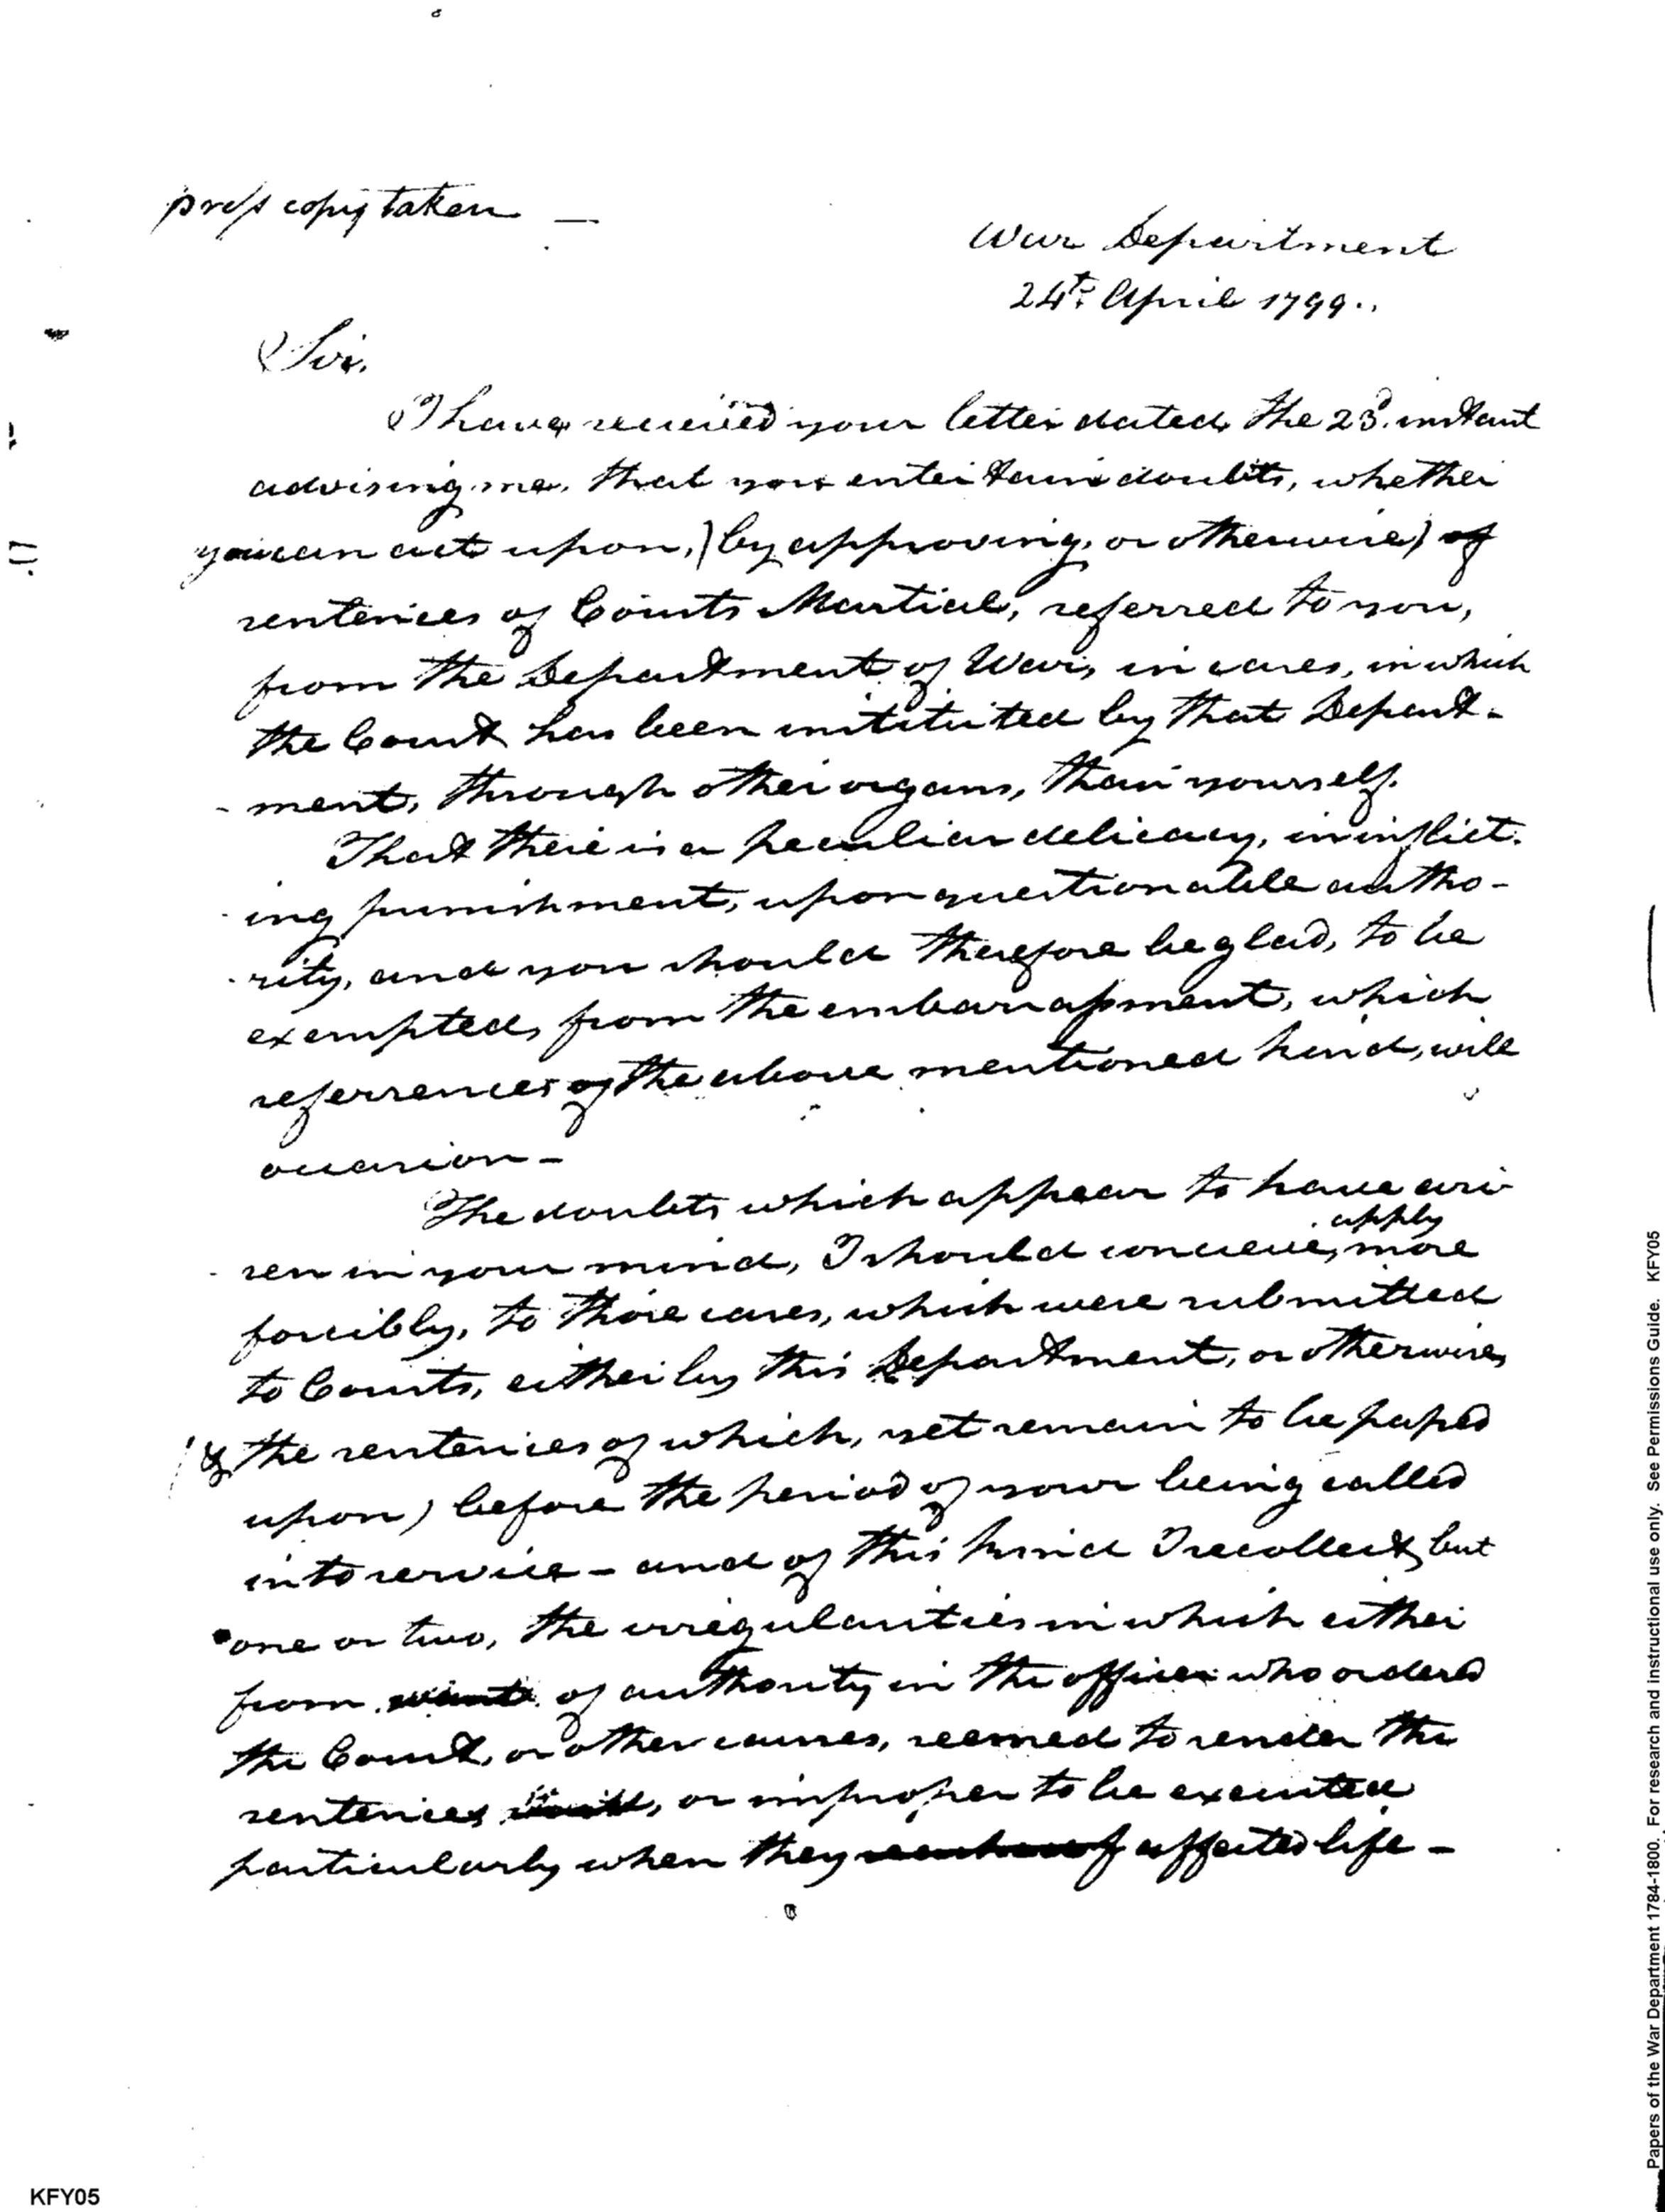 press copy taken —
War Department
24th. April 1799..
Sir.
I have received your letter dated the 23d. instant
advising me, that you entertain doubts, whether
you can act upon, (by approving, or otherwise) of
sentences of Courts Martial, referred to you,
from the Department of War, in cases, in which
the Court has been instituted by that Depart-
-ment, through other organs, than yourself.
That there is a peculiar delicacy, in inflict-
-ing punishment, upon questionable autho-
-rity, and you should therefore be glad, to be
exempted, from the embarrassment, which
referrences of the above mentioned kind, will
occasion -
The doubts which appear to have ari-
apply
-sen in your mind, I should conceive, more
forcibly, to those cases, which were submitted
to Courts, either by this Department, or otherwise,
(& the sentences of which, yet remain to be passed
upon) before the period of your being called
into service - and of this kind I recollect, but
one or two, the irregularities in which either
from want of authority in the officer who ordered
the Court, or other causes, seemed to render the
sentences void, or improper to be executed
particularly when they affected life -
KFY05
Papers of the War Department 1784-1800. For research and instructional use only. See Permissions Guide. KFY05